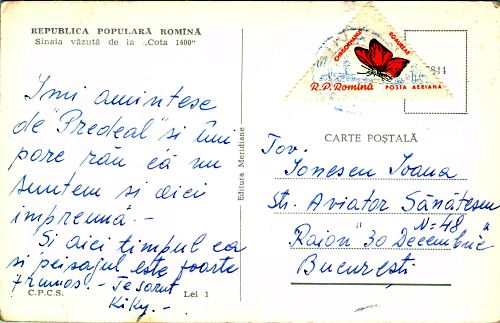 REPUBLICA POPULARĂ ROMÎNĂ
Sinaia văzută de la „Cota 1400"
Îmi amintesc
de "Predeal" si îmi
pare rău că nu
suntem si aici
împreună. -
Si aici timpul ca
si peisagul este foarte
frumos. - Te sarut
Kiky. -
C.P.C.S. Lei 1
Editura Meridiane
R.P. Romînă POSTA AERIANA
CARTE POȘTALĂ
Tov.
Ionescu Ioana
Str. Aviator Sănătescu
N=48
Raion "30 Decembrie"
București